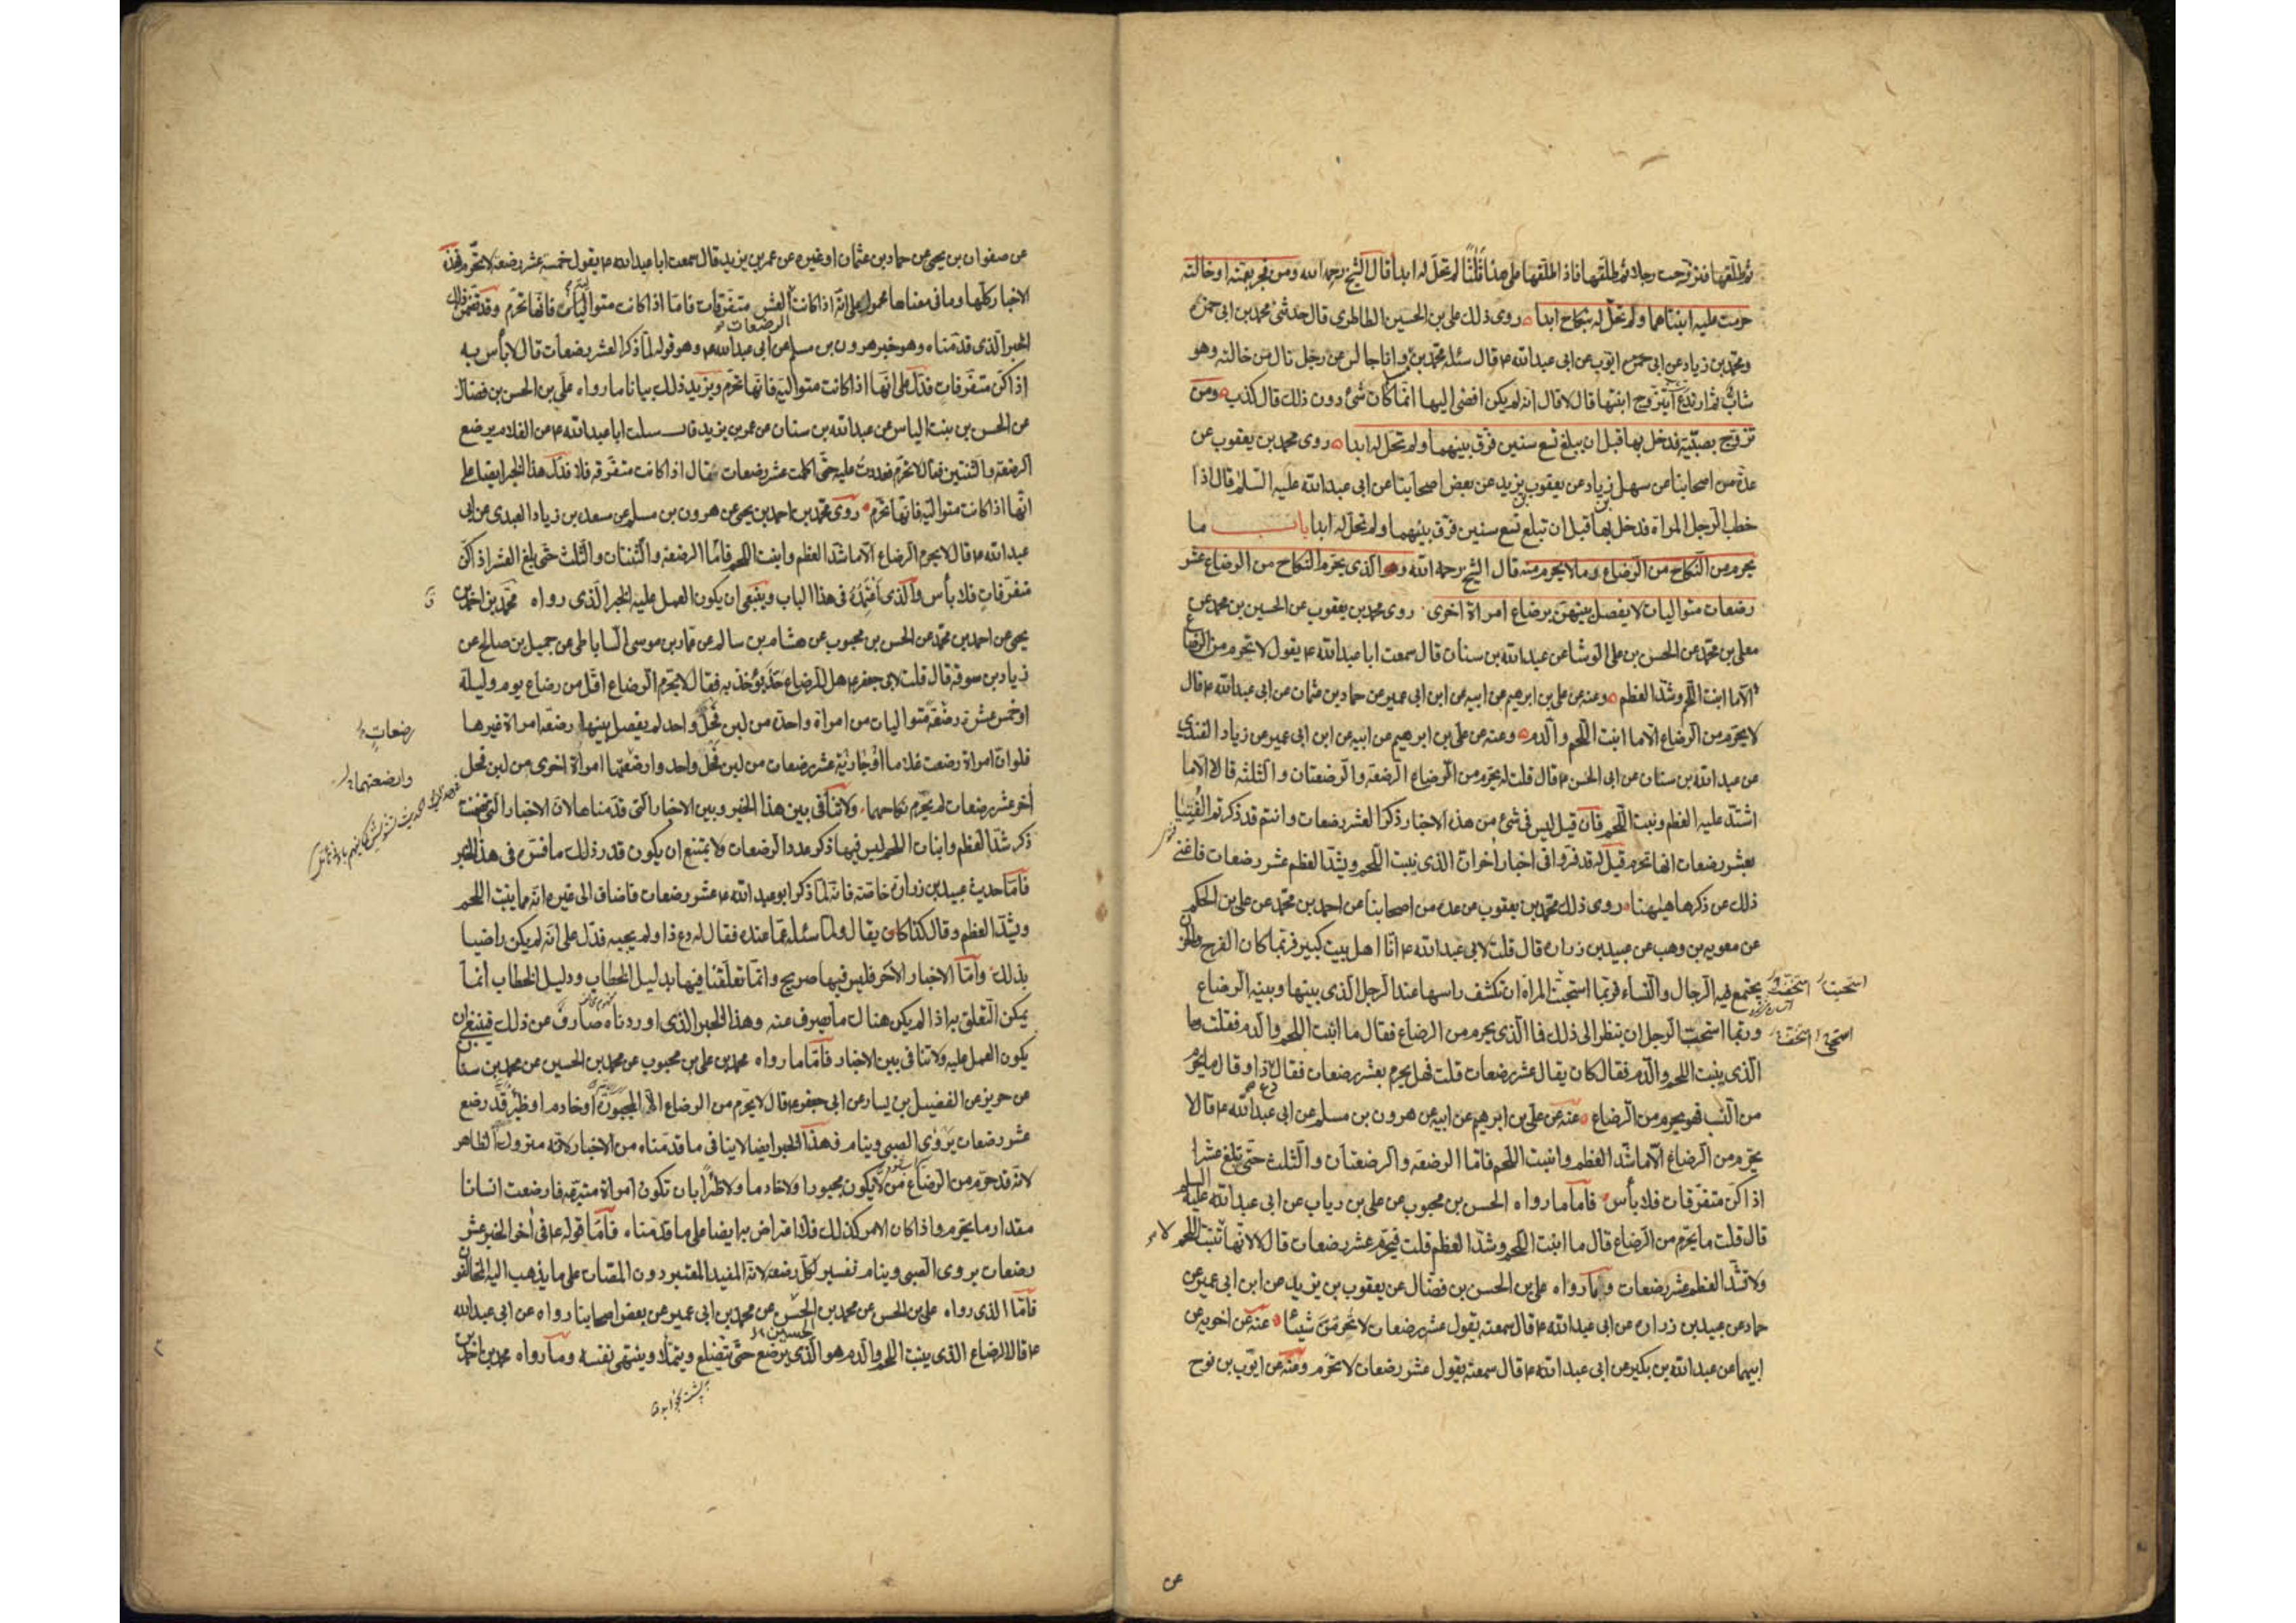 ثم طلقها فتزوجت رجلا ثم طلقها فاذا طلقها على هذا ثلثا لم تحل له ابدا قال الشيخ رحمه الله ومن فجر بعمته او خالته
حرمت عليه ابنتاهما ولم تحل له بنكاح ابدا روى ذلك على بن الحسين الطاطرى قال حدثنى محمد بن ابى حمزه
ومحمد بن زياد عن ابى ايوب عن ابى عبد الله ع قال سئله محمد بن وانا جالس عن رجل نال من خالته وهو
شاب ثم ارتدع أيتزوج ابنتها قال لا قال انه لم يكن افضى اليها انما كان شئ دون ذلك قال كذب ومن
تزوج بصبية فدخل بها قبل ان يبلغ تسع سنين فرق بينهما ولم تحل له ابدا روى محمد بن يعقوب عن
عدة من اصحابنا عن سهل بن زياد عن يعقوب بن يزيد عن بعض اصحابنا عن ابى عبد الله عليه السلم قال اذا
خطب الرجل المراة فدخل بها قبل ان تبلغ تسع سنين فرق بينهما ولم تحل له ابدا باب ما
يحرم من النكاح من الرضاع وما لا يحرم منه قال الشيخ رحمه الله والذى يحرم النكاح من الرضاع عشر
رضعات متواليات لا يفصل بينهن برضاع امراة اخرى روى محمد بن يعقوب عن الحسين بن محمد عن
معلى بن محمد عن الحسن بن على الوشا عن عبد الله بن سنان قال سمعت ابا عبد الله ع يقول لا يحرم من الرضاع
الا ما انبت اللحم وشد العظم وعنه عن على بن ابرهيم عن ابيه عن ابن ابى عمير عن حماد بن عثمان عن ابى عبد الله ع قال
لا يحرم من الرضاع الا ما انبت اللحم والدم وعنه عن على بن ابرهيم عن ابيه عن ابن ابى عمير عن زياد القندى
عن عبد الله بن سنان عن ابى الحسن ع قال قلت له يحرم من الرضاع الرضعة والرضعتان والثلثة قال لا الا ما
اشتد عليه العظم ونبت اللحم فان قيل ليس فى شئ من هذه الاخبار ذكر العشر رضعات وانتم قد ذكرتم الفتيا
بعشر رضعات انها تحرم قيل له قد فروا فى اخبار اخر ان الذى ينبت اللحم ويشد العظم عشر رضعات فاغنى
ذلك عن ذكرها ههنا روى ذلك محمد بن يعقوب عن عدة من اصحابنا عن احمد بن محمد عن على بن الحكم
عن معويه بن وهب عن عبيد بن زراره قال قلت لابى عبد الله ع انا اهل بيت كبير فربما كان الفرح والحزن
يجتمع فيه الرجال والنساء فربما استحيت المراة ان تكشف راسها عند الرجل الذى بينها وبينه الرضاع
استحيت استخفت
وربما استحب الرجل ان ينظر الى ذلك فما الذى يحرم من الرضاع فقال ما انبت اللحم والدم فقلت وما
استحى استخف
الذى ينبت اللحم والدم فقال كان يقال عشر رضعات قلت فهل يحرم بعشر رضعات فقال دع ذا وقال ما يحرم
من النسب فهو يحرم من الرضاع عنه عن على بن ابرهيم عن ابيه عن هرون بن مسلم عن ابى عبد الله ع قال لا
يحرم من الرضاع الا ما شد العظم وانبت اللحم فاما الرضعة والرضعتان والثلث حتى يبلغ عشرا
اذا كن متفرقات فلا بأس فاما ما رواه الحسن بن محبوب عن على بن رياب عن ابى عبد الله عليه السلم
قال قلت ما يحرم من الرضاع قال ما انبت اللحم وشد العظم قلت فيحرم عشر رضعات قال لا لانها لا تنبت اللحم
ولا تشد العظم عشر رضعات وما رواه على بن الحسن بن فضال عن يعقوب بن يزيد عن ابن ابى عمير عن
حماد عن عبيد بن زراره عن ابى عبد الله ع قال سمعته يقول عشر رضعات لا تحرمن شيئا عنه عن اخويه عن
ابيهما عن عبد الله بن بكير عن ابى عبد الله ع قال سمعته يقول عشر رضعات لا تحرم وعنه عن ايوب بن نوح
عن صفوان بن يحيى عن حماد بن عثمان او غيره عن عمر بن يزيد قال سمعت ابا عبد الله ع يقول خمسة عشر رضعة لا تحرم فهذه
الاخبار كلها وما فى معناها محمول على انه اذا كانت العشر الرضعات متفرقات فاما اذا كانت متواليات فانها تحرم وقد تضمن ذلك
الخبر الذى قدمناه وهو خبر هرون بن مسلم عن ابى عبد الله ع وهو قوله لما ذكر العشر رضعات قال لا بأس به
اذا كن متفرقات فدل على انها اذا كانت متوالية فانها تحرم ويزيد ذلك بيانا ما رواه على بن الحسن بن فضال
عن الحسن بن بنت الياس عن عبد الله بن سنان عن عمر بن يزيد قال سالت ابا عبد الله ع عن الغلام يرضع
الرضعة والثنتين فقال لا تحرم فعددت عليه حتى اكملت عشر رضعات فقال اذا كانت متفرقه فلا فدل هذا الخبر ايضا على
انها اذا كانت متوالية فانها تحرم روى محمد بن احمد بن يحيى عن هرون بن مسلم عن مسعدة بن زياد العبدى عن ابى
عبد الله ع قال لا يحرم الرضاع الا ما شد العظم وانبت اللحم فاما الرضعة والثنتان والثلث حتى يبلغ العشر اذا كن
متفرقات فلا بأس والذى اعتمده فى هذا الباب وينبغى ان يكون العمل عليه الخبر الذى رواه محمد بن احمد بن
يحيى عن احمد بن محمد عن الحسن بن محبوب عن هشام بن سالم عن عمار بن موسى الساباطى عن جميل بن صالح عن
زياد بن سوقة قال قلت لابى جعفر ع هل للرضاع حد يؤخذ به فقال لا يحرم الرضاع اقل من رضاع يوم وليلة
او خمس عشرة رضعة متواليات من امراة واحدة من لبن فحل واحد لم يفصل بينها رضعة امراة غيرها
رضعات
فلو ان امراة رضعت غلاما او جارية عشر رضعات من لبن فحل واحد وارضعتها امراة اخرى من لبن فحل
وارضعتهما
آخر عشر رضعات لم يحرم نكاحهما ولا تنافى بين هذا الخبر وبين الاخبار التى قدمناها لان الاخبار التى تضمنت
ذكر شد العظم وانبات اللحم ليس فيها ذكر عدد الرضعات ولا يمتنع ان يكون قدر ذلك ما فسر فى هذا الخبر
فاما حديث عبيد بن زراره خاصة فانه لما ذكر ابو عبد الله ع عشر رضعات فاضاف الى غيره انه مما ينبت اللحم
ويشد العظم وقال كذا كان يقال ولما سئله عما عنده فقال له دع ذا ولم يجبه فدل على انه لم يكن راضيا
بذلك واما الاخبار الاخر فليس فيها صريح وانما تعلقنا فيها بدليل الخطاب ودليل الخطاب انما
يمكن التعلق به اذا لم يكن هناك ما يصرف عنه وهذا الخبر الذى اوردناه صارف عن ذلك فينبغى ان
يكون العمل عليه ولا تنافى بين الاخبار فاما ما رواه محمد بن على بن محبوب عن محمد بن الحسين عن محمد بن سنان
عن حريز عن الفضيل بن يسار عن ابى جعفر ع قال لا يحرم من الرضاع الا المجبورة او خادم او ظئر قد رضع
عشر رضعات يروى الصبى وينام فهذا الخبر ايضا لا ينافى ما قدمناه من الاخبار لانه متروك الظاهر
لانه قد حرم من الرضاع من لا يكون مجبورا ولا خادما ولا ظئرا بان تكون امراة متبرعة فارضعت انسانا
مقدار ما يحرم واذا كان الامر كذلك فلا اعتراض به ايضا على ما قدمناه فاما قوله ع فى اخر الخبر عشر
رضعات يروى الصبى وينام تفسير لكل رضعة لانه المفيد المعتبر دون المصات على ما يذهب اليه المخالفون
فاما الذى رواه على بن الحسن عن محمد بن الحسن عن محمد بن ابى عمير عن بعض اصحابنا رواه عن ابى عبد الله
ع قال الرضاع الذى ينبت اللحم والدم هو الذى يرضع حتى يتضلع ويتملا وينتهى نفسه وما رواه محمد بن احمد بن